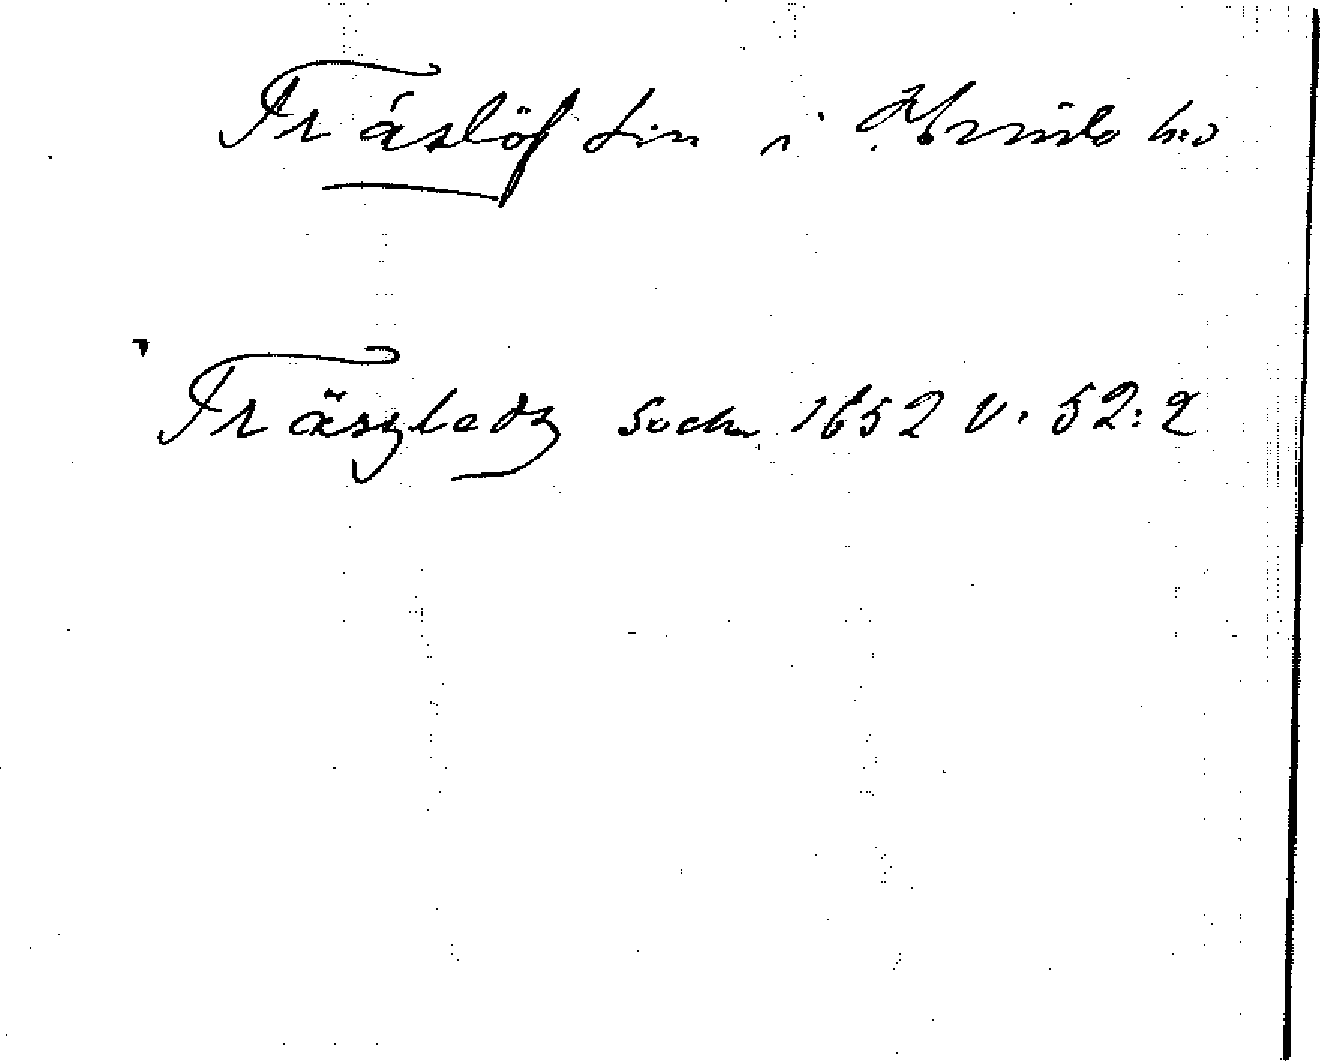 Träslöf sn i Himle hd
Träszledz Sockn 1652 V. 52:2